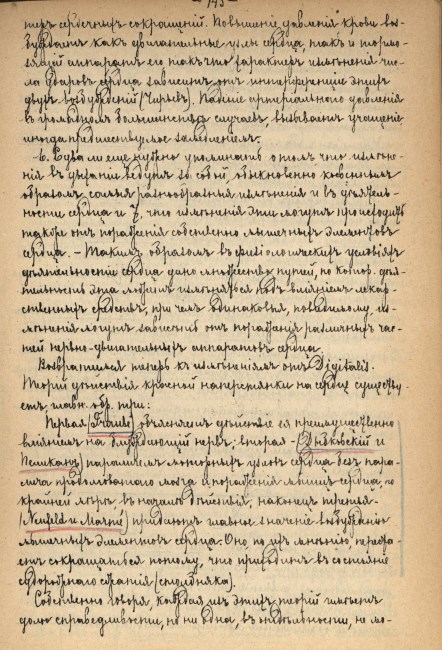 - 143 -
техъ сердечныхъ сокращеній. Повышеніе давленія крови воз-
буждаетъ какъ двигательные узлы сердца, такъ и тормо-
зящій аппаратъ его такъ что характеръ измѣненія чис-
ла ударовъ сердца зависитъ отъ интерференціи этихъ
двухъ возбужденій (Чирьевъ). Паденіе артеріальнаго давленія
въ громадномъ большинствѣ случаевъ, вызываетъ учащеніе
иногда предшествуемое замедленіемъ.
6. Едва ли еще нужно упоминать о томъ что измѣне-
нія въ дыханіи ведутъ за собой, обыкновенно косвеннымъ
образомъ самыя разнообразныя измѣненія и въ дѣятель-
ности сердца и 7, что измѣненія эти могутъ происходить
также отъ пораженія собственно мышечныхъ элементовъ
сердца. - Такимъ образомъ въ физіологическихъ условіяхъ
дѣятельности сердца дано множество путей, по котор. дѣя-
тельность эта можетъ измѣняться подъ вліяніемъ лекар-
ственныхъ средствъ, при чемъ одинаковыя, повидимому из-
мѣненія могутъ зависѣть отъ пораженія различныхъ час-
тей нервно-двигательныхъ аппаратовъ сердца.
Возвратимся теперь къ измѣненіямъ отъ Digitalis.
Теорій дѣйствія красной наперстянки на сердце существу-
етъ главн. обр. три:
Первая (Traube) объясняетъ дѣйствіе ея преимущественно
вліяніемъ на блуждающій нервъ; вторая - (Дыбковскій и
Пеликанъ) параличемъ моторныхъ узловъ сердца безъ пара-
лича продолговатаго мозга и пораженія мышцъ сердца, по
крайней мѣрѣ въ началѣ дѣйствія, наконецъ третья -
(Neufeld и) придаютъ главное значеніе возбужденію
мышечныхъ элементовъ сердца. Оно по ихъ мнѣнію перестa-
етъ сокращаться потому, что приходитъ въ состояніе
судорожнаго сжатія (столбняка).
Собственно говоря, каждая изъ этихъ теорій имѣетъ
долю справедливости, но ни одна, въ отдѣльности, не мо-